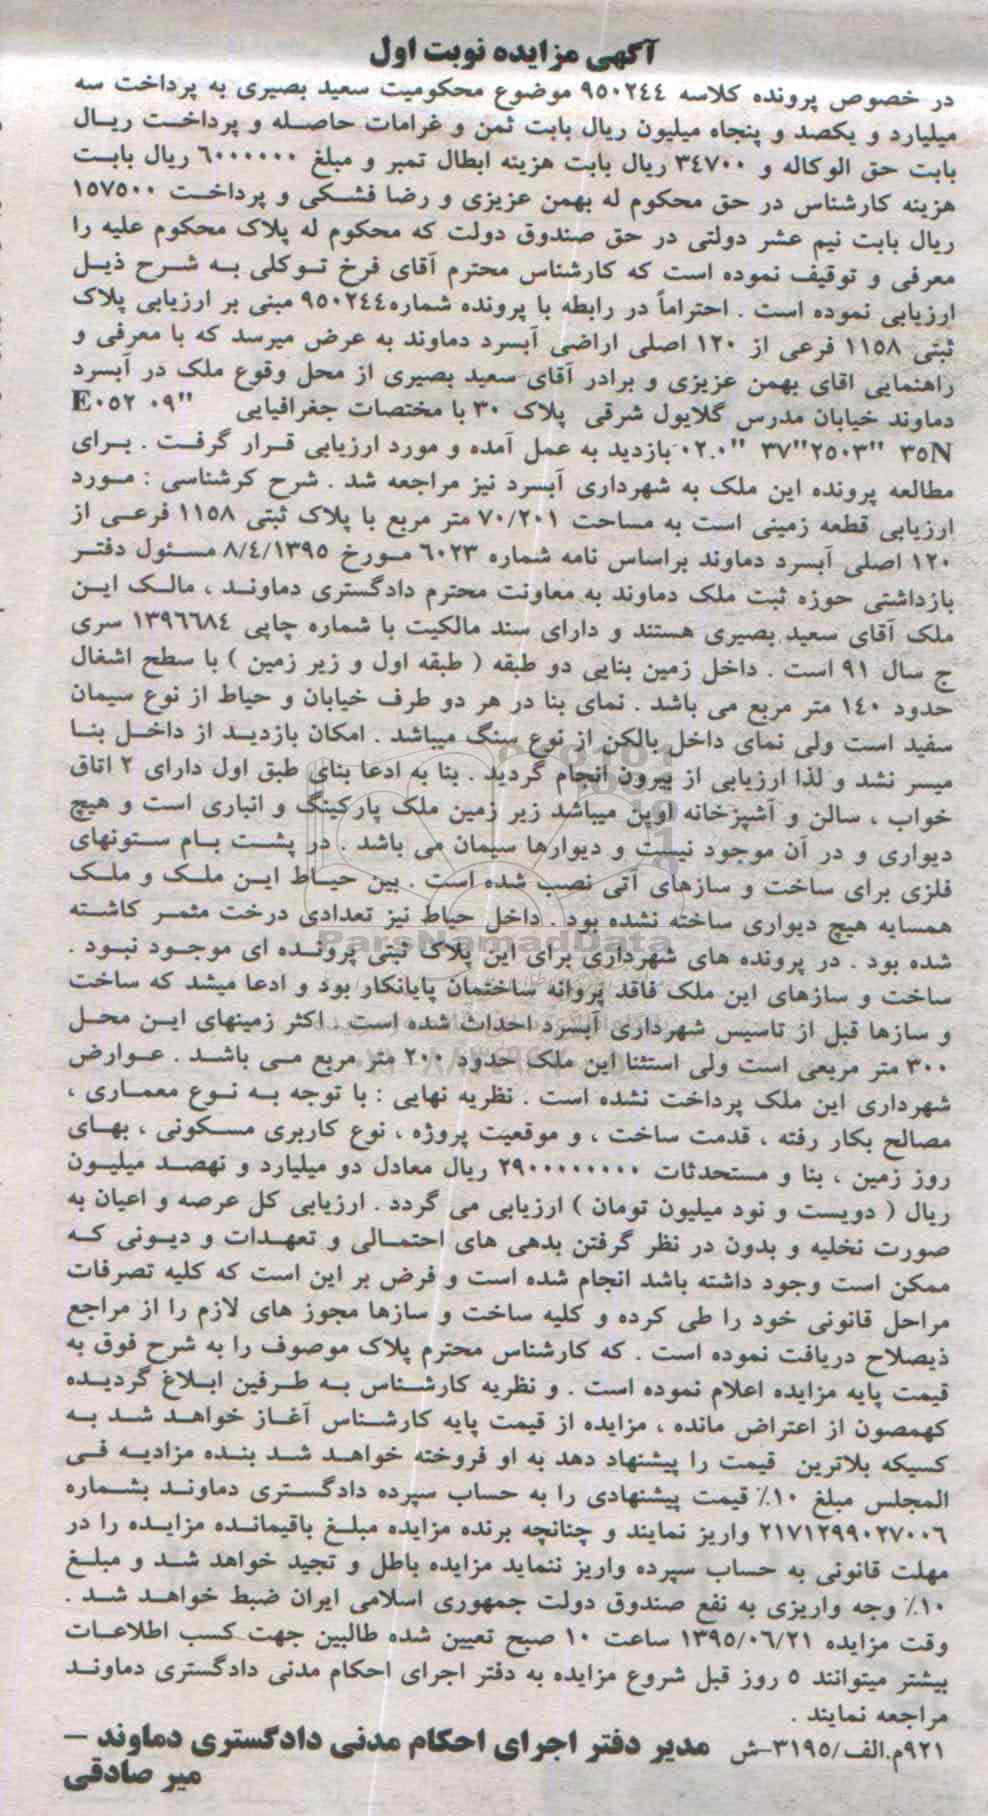 آگهی مزایده نوبت اول
در خصوص پرونده کلاسه ۹۵۰۲۴۴ موضوع محکومیت سعید بصیری به پرداخت سه
میلیارد و یکصد و پنجاه میلیون ریال بابت ثمن و غرامات حاصله و پرداخت ریال
بابت حق الوکاله و ۳۴۷۰۰ ریال بابت هزینه ابطال تمبر و مبلغ ۶۰۰۰۰۰۰ ریال بابت
هزینه کارشناس در حق محکوم له بهمن عزیزی و رضا فشکی و پرداخت ۱۵۷۵۰۰
ریال بابت نیم عشر دولتی در حق صندوق دولت که محکوم له پلاک محکوم علیه را
معرفی و توقیف نموده است که کارشناس محترم آقای فرخ توکلی به شرح ذیل
ارزیابی نموده است . احتراماً در رابطه با پرونده شماره۹۵۰۲۴۴ مبنی بر ارزیابی پلاک
ثبتی ۱۱۵۸ فرعی از ۱۲۰ اصلی اراضی آبسرد دماوند به عرض میرسد که با معرفی و
راهنمایی اقای بهمن عزیزی و برادر آقای سعید بصیری از محل وقوع ملک در آبسرد
دماوند خیابان مدرس گلایول شرقی پلاک ۳۰ با مختصات جغرافیایی "۰۹ E۰۵۲
۳۵N "۲۵۰۳"۳۷ "۰۲.۰ بازدید به عمل آمده و مورد ارزیابی قرار گرفت . برای
مطالعه پرونده این ملک به شهرداری آبسرد نیز مراجعه شد . شرح کرشناسی : مورد
ارزیابی قطعه زمینی است به مساحت ۷۰/۲۰۱ متر مربع با پلاک ثبتی ۱۱۵۸ فرعی از
۱۲۰ اصلی آبسرد دماوند براساس نامه شماره ۶۰۲۳ مورخ ۸/۴/۱۳۹۵ مسئول دفتر
بازداشتی حوزه ثبت ملک دماوند به معاونت محترم دادگستری دماوند ، مالک این
ملک آقای سعید بصیری هستند و دارای سند مالکیت با شماره چاپی ۱۳۹۶۶۸۴ سری
ج سال ۹۱ است . داخل زمین بنایی دو طبقه ( طبقه اول و زیر زمین ) با سطح اشغال
حدود ۱۴۰ متر مربع می باشد . نمای بنا در هر دو طرف خیابان و حیاط از نوع سیمان
سفید است ولی نمای داخل بالکن از نوع سنگ میباشد . امکان بازدید از داخل بنا
میسر نشد و لذا ارزیابی از بیرون انجام گردید . بنا به ادعا بنای طبق اول دارای ۲ اتاق
خواب ، سالن و آشپزخانه اوپن میباشد زیر زمین ملک پارکینگ و انباری است و هیچ
دیواری و در آن موجود نیست و دیوارها سیمان می باشد . در پشت بام ستونهای
فلزی برای ساخت و سازهای آتی نصب شده است . بین حیاط این ملک و ملک
همسایه هیچ دیواری ساخته نشده بود . داخل حیاط نیز تعدادی درخت مثمر کاشته
شده بود . در پرونده های شهرداری برای این پلاک ثبتی پرونده ای موجود نبود .
ساخت و سازهای این ملک فاقد پروانه ساختمان پایانکار بود و ادعا میشد که ساخت
و سازها قبل از تاسیس شهرداری آبسرد احداث شده است . اکثر زمینهای این محل
۳۰۰ متر مربعی است ولی استثنا این ملک حدود ۲۰۰ متر مربع می باشد . عوارض
شهرداری این ملک پرداخت نشده است . نظریه نهایی : با توجه به نوع معماری ،
مصالح بکار رفته ، قدمت ساخت ، و موقعیت پروژه ، نوع کاربری مسکونی ، بهای
روز زمین ، بنا و مستحدثات ۲۹۰۰۰۰۰۰۰۰ ریال معادل دو میلیارد و نهصد میلیون
ریال ( دویست و نود میلیون تومان ) ارزیابی می گردد . ارزیابی کل عرصه و اعیان به
صورت نخلیه و بدون در نظر گرفتن بدهی های احتمالی و تعهدات و دیونی که
ممکن است وجود داشته باشد انجام شده است و فرض بر این است که کلیه تصرفات
مراحل قانونی خود را طی کرده و کلیه ساخت و سازها مجوز های لازم را از مراجع
ذیصلاح دریافت نموده است . که کارشناس محترم پلاک موصوف را به شرح فوق به
قیمت پایه مزایده اعلام نموده است . و نظریه کارشناس به طرفین ابلاغ گردیده
کهمصون از اعتراض مانده ، مزایده از قیمت پایه کارشناس آغاز خواهد شد به
کسیکه بلاترین قیمت را پیشنهاد دهد به او فروخته خواهد شد بنده مزادیه فی
المجلس مبلغ ۱۰٪ قیمت پیشنهادی را به حساب سپرده دادگستری دماوند بشماره
۲۱۷۱۲۹۹۰۲۷۰۰۶ واریز نمایند و چنانچه برنده مزایده مبلغ باقیمانده مزایده را در
مهلت قانونی به حساب سپرده واریز ننماید مزایده باطل و تجید خواهد شد و مبلغ
۱۰٪ وجه واریزی به نفع صندوق دولت جمهوری اسلامی ایران ضبط خواهد شد .
وقت مزایده ۱۳۹۵/۰۶/۲۱ ساعت ۱۰ صبح تعیین شده طالبین جهت کسب اطلاعات
بیشتر میتوانند ۵ روز قبل شروع مزایده به دفتر اجرای احکام مدنی دادگستری دماوند
مراجعه نمایند .
۹۲۱م.الف/۳۱۹۵-ش مدیر دفتر اجرای احکام مدنی دادگستری دماوند –
میر صادقی
ParsNamadData